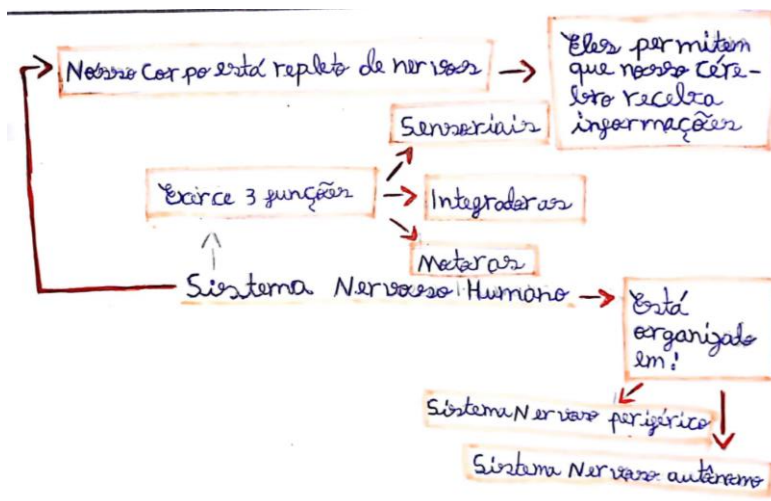 Nosso Corpo está repleto de nervos
Eles permitem
que nosso cére-
bro receba
informações
Sensoriais
Exerce 3 funções
Integradoras
Motoras
Sistema Nervoso Humano
Está
organizado
em:
Sistema Nervoso periférico
Sistema Nervoso autônomo